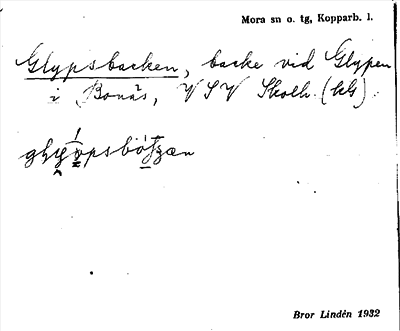 Mora sn o. tg, Kopparb. l.
Glypsbacken, backe vid Glypen
i Bonäs, VSV Skolh. (hg).
Bror Lindén 1932